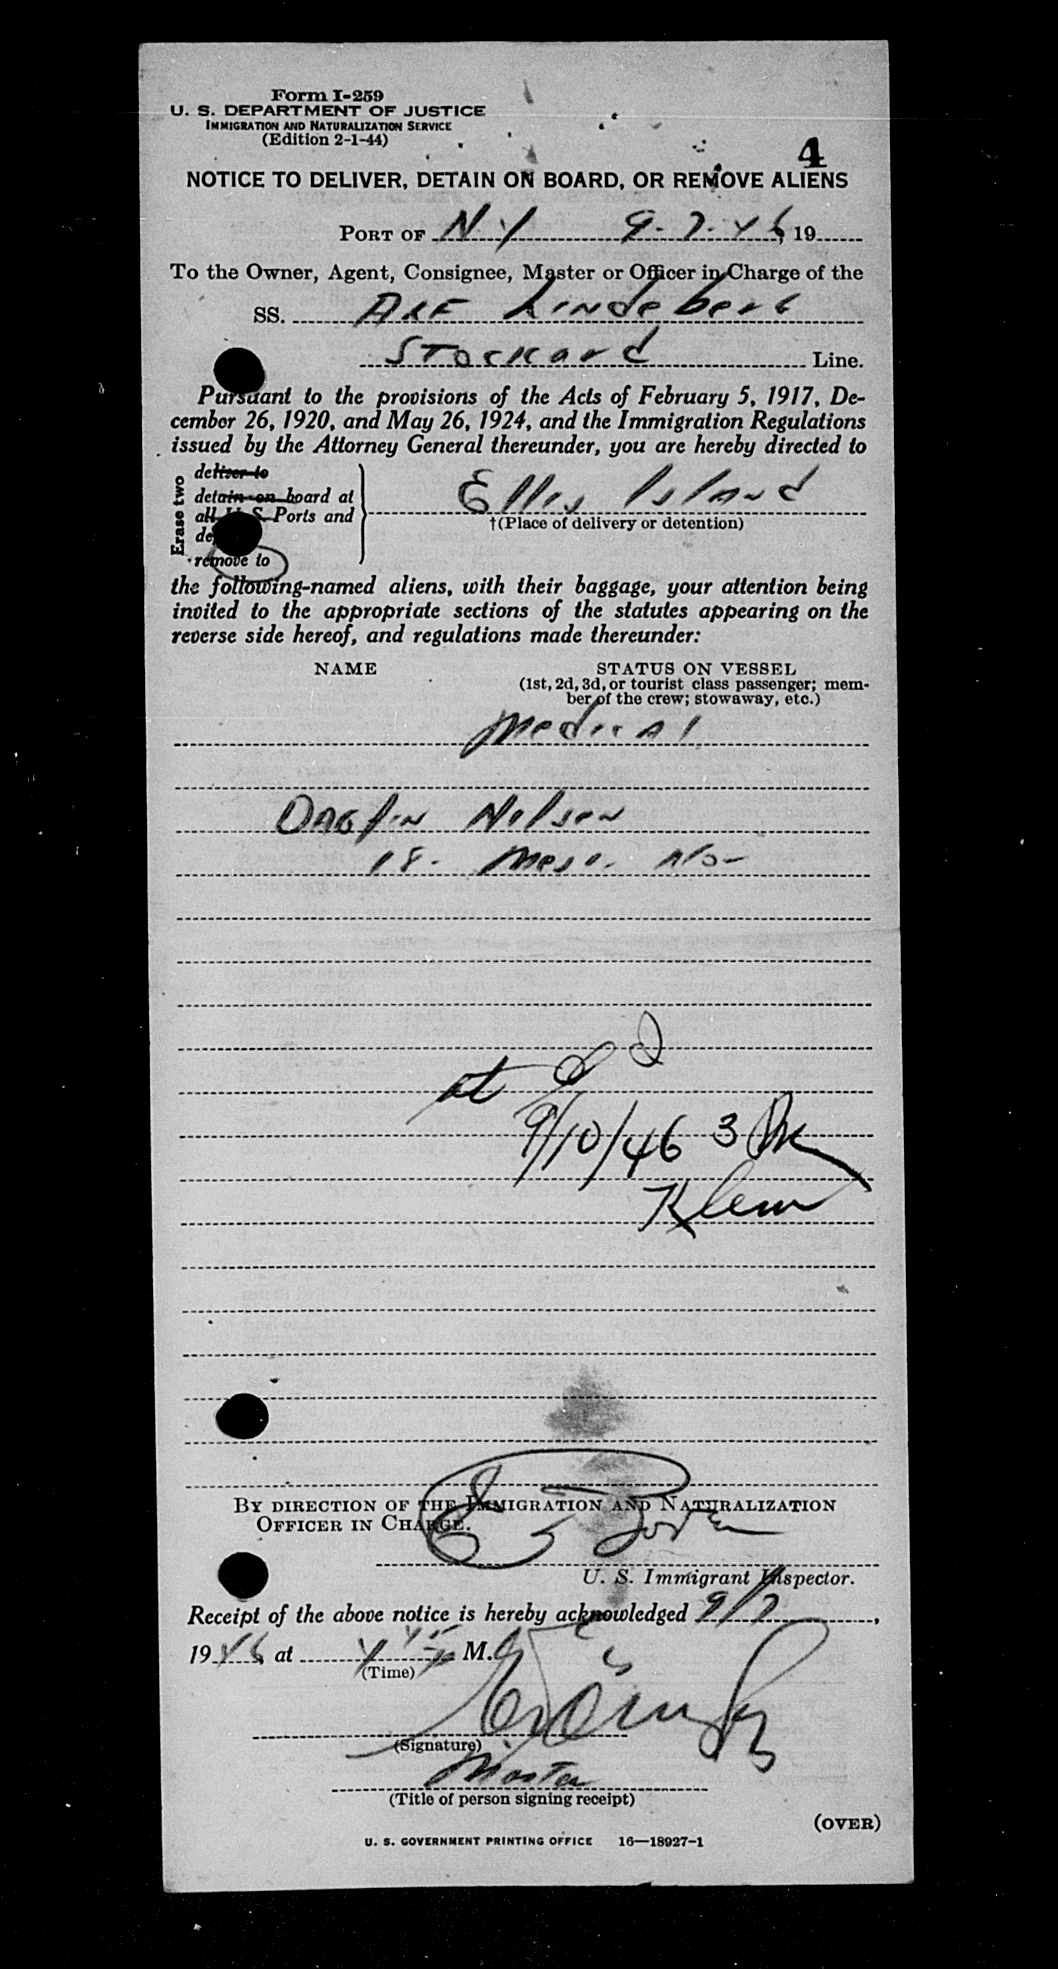 Form I-259
U. S. DEPARTMENT OF JUSTICE
IMMIGRATION AND NATURALIZATION SERVICE
(Edition 2-1-44)
4
NOTICE TO DELIVER, DETAIN ON BOARD, OR REMOVE ALIENS
PORT OF N Y 9-7-46, 19
To the Owner, Agent, Consignee, Master or Officer in Charge of the
SS. Alf Lindeberg
Stockard Line.
Pursuant to the provisions of the Acts of February 5, 1917, De-
cember 26, 1920, and May 26, 1924, and the Immigration Regulations
issued by the Attorney General thereunder, you are hereby directed to
Erase two
deliver to
detain on board at
all U. S. Ports and
remove to
Ellis Island
†(Place of delivery or detention)
the following-named aliens, with their baggage, your attention being
invited to the appropriate sections of the statutes appearing on the
reverse side hereof, and regulations made thereunder:
NAME STATUS ON VESSEL
(1st, 2d, 3d, or tourist class passenger; mem-
ber of the crew; stowaway, etc.)
Medical
Dagfin Nilsen
18-
at
9/10/46 3 PM
BY DIRECTION OF THE IMMIGRATION AND NATURALIZATION
OFFICER IN CHARGE.
U. S. Immigrant Inspector.
Receipt of the above notice is hereby acknowledged 9/7,
1946 at 4 45 P M.
(Time)
(Signature)
Master
(Title of person signing receipt)
(OVER)
U. S. GOVERNMENT PRINTING OFFICE 16—18927-1